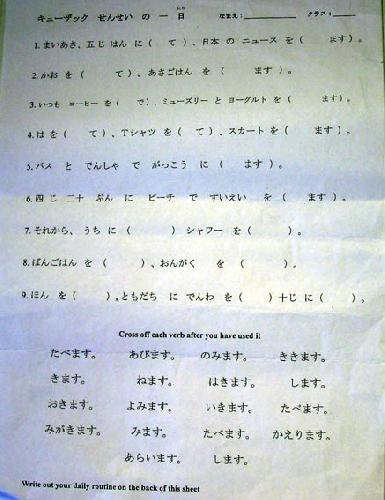 キューザック せんせい の 一 日 なまえ:__________ クラス:_____
1. まいあさ、五じ はん に ( て )、日本 の ニュース を ( ます )。
2. かお を ( て )、あさごはん を ( ます )。
3. いつも コーヒー を ( で ) ミューズリー と ヨーグルト を ( ます )。
4. は を ( て )、Tシャツ を ( て )、スカート を ( ます )。
5. バス と でんしゃ で がっこう に ( ます )。
6. 四 じ 二十 ぷん に ビーチ で すいえい を ( ます )。
7. それから、うち に ( ) シャワー を ( )。
8. ばんごはん を ( )、おんがく を ( )。
9. ほん を ( )、ともだち に でんわ を ( ) 十じ に ( )。
Cross off each verb after you have used it
たべます。 あびます。 のみます。 ききます。
きます。 ねます。 はきます。 します。
おきます。 よみます。 いきます。 たべます。
みがきます。 みます。 たべます。 かえります。
あらいます。 します。
Write out your daily routine on the back of this sheet